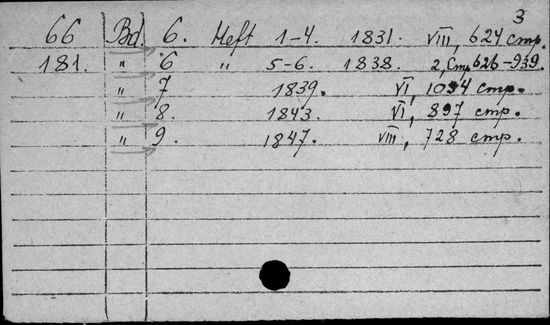 3
66 Bd. 6. Heft 1-4. 1831. VIII, 624 стр.
181. " 6 " 5-6. 1838. 2, стр 626-939.
" 7 1839. VI, 1034 стр.
" 8. 1843. VI, 897 стр.
" 9. 1847. VIII, 728 стр.